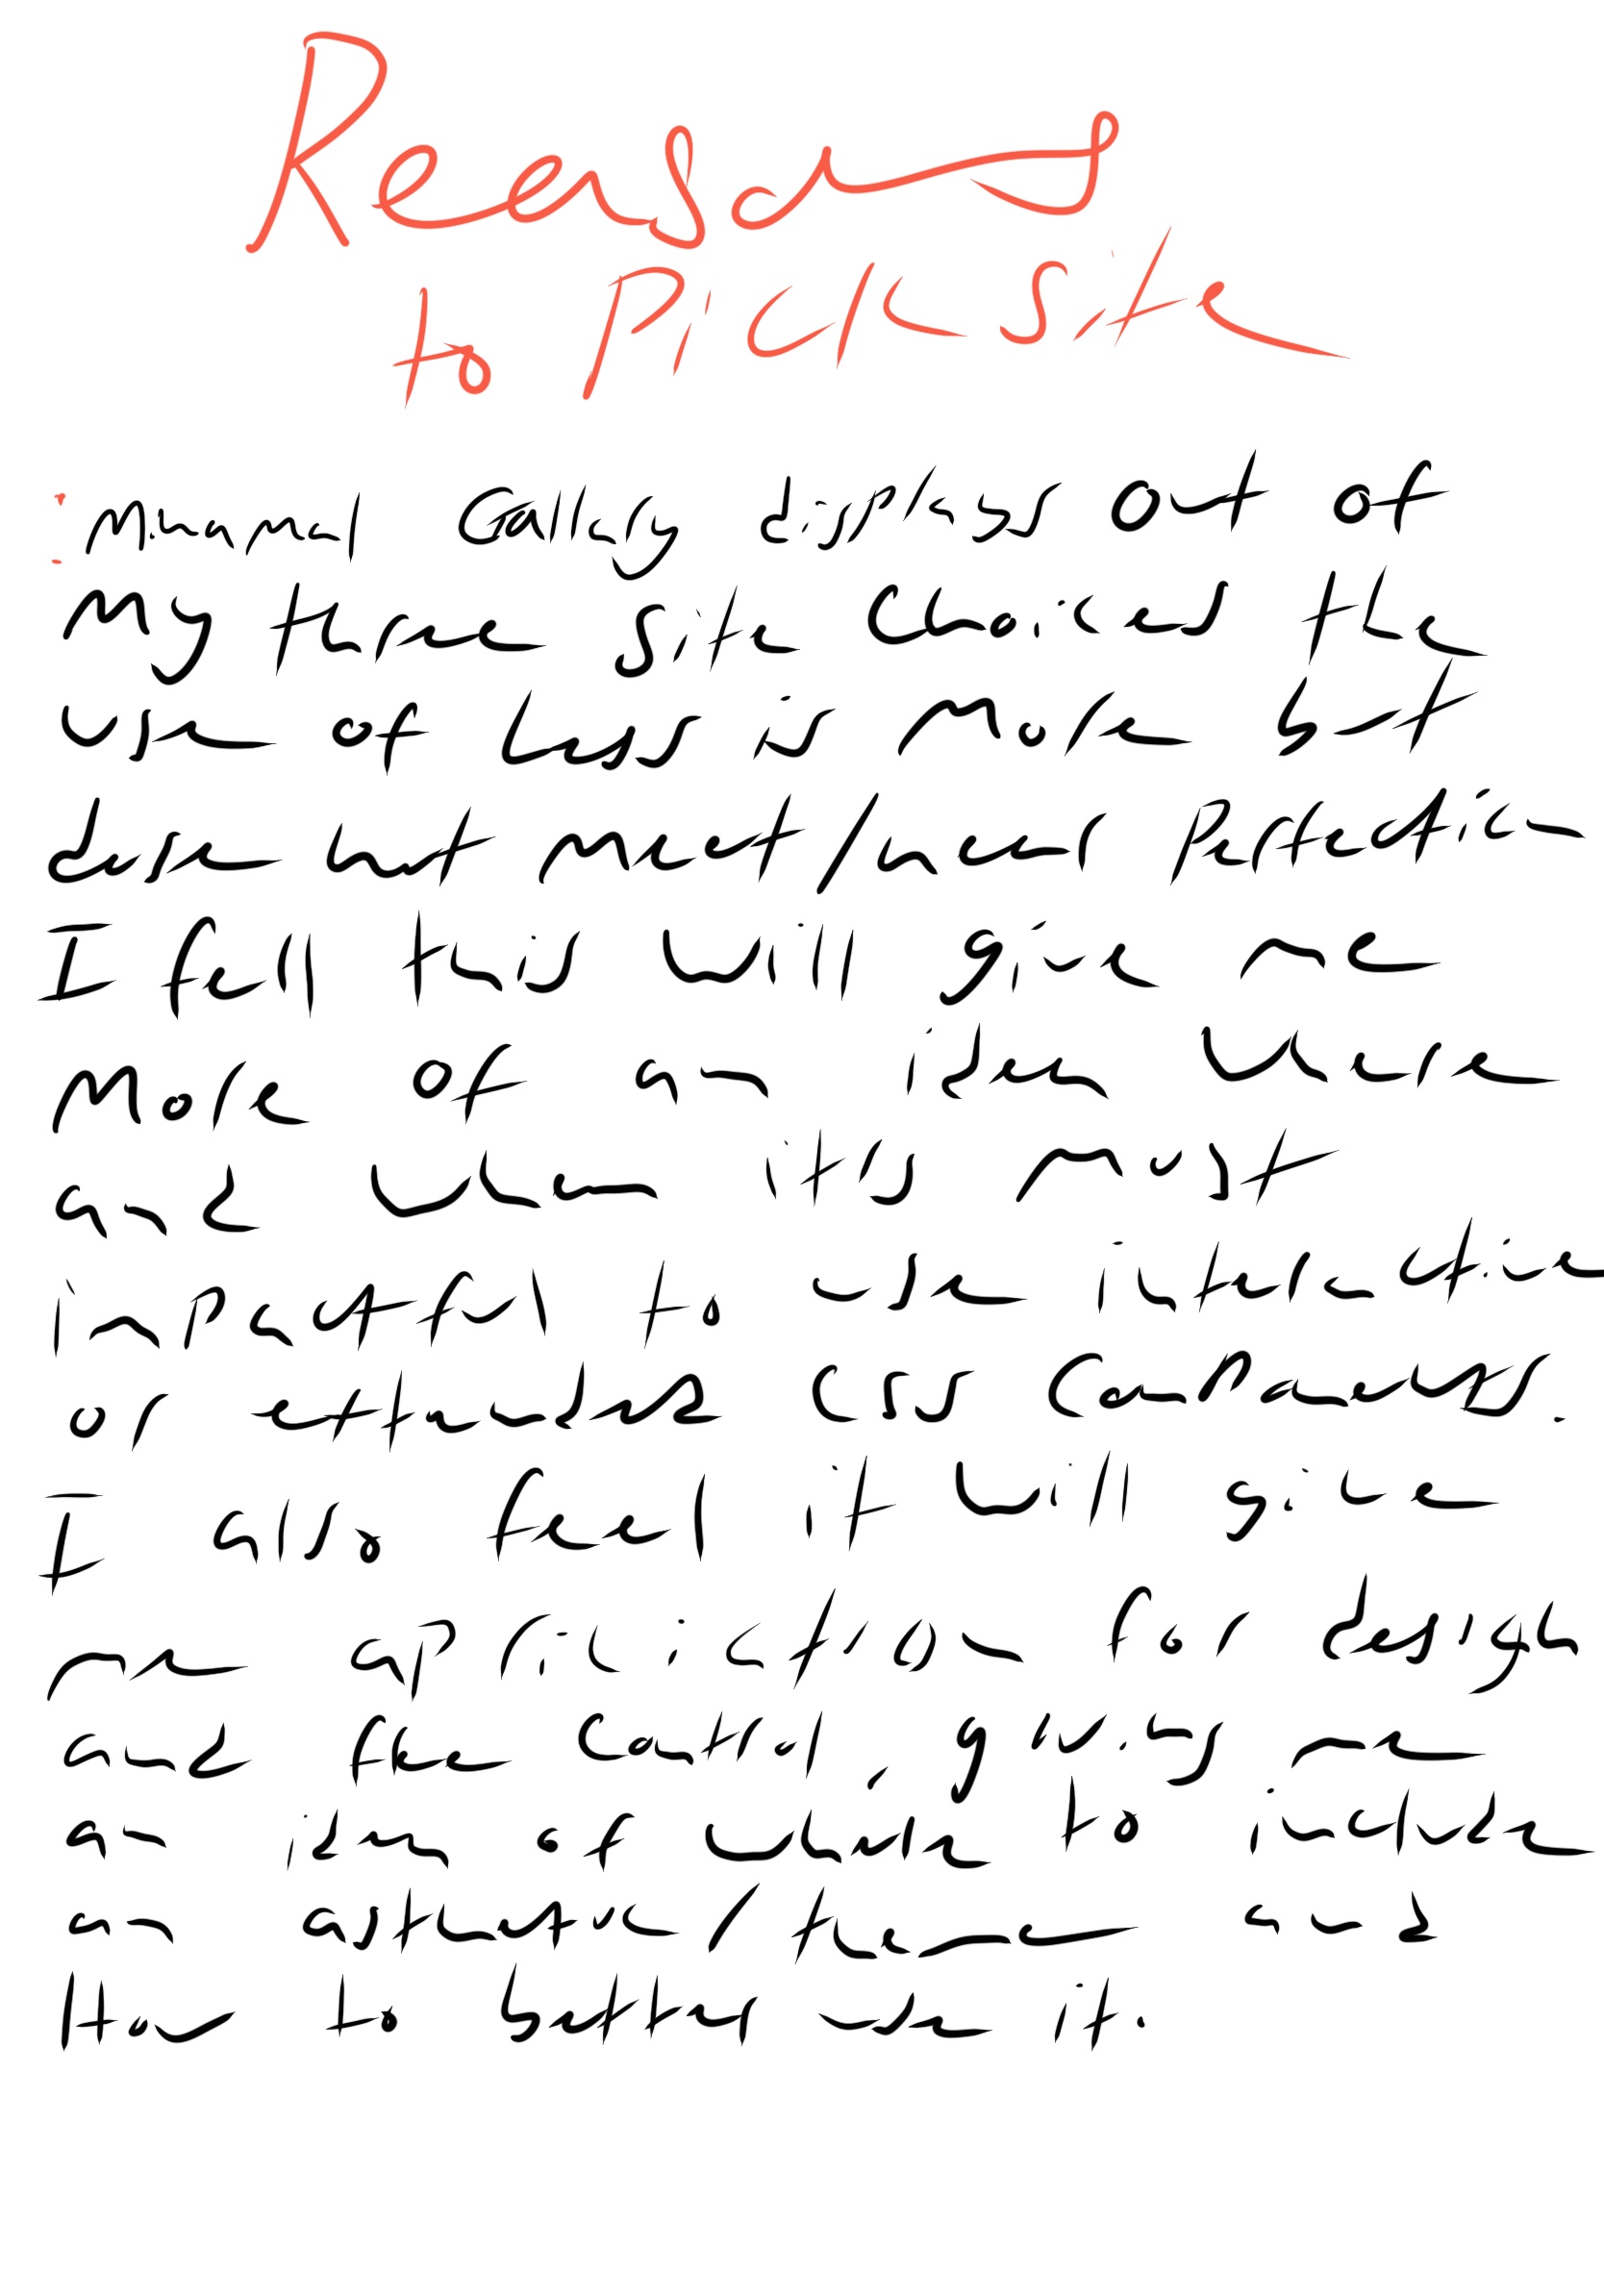 Reasons
to Pick Site
: minimal college displays out of
My three site choices the
use of less is more but
done but neat/near perfection
I fell this will give me
More of an idea where
and when it's most
impactful to use interaction
or extended css components.
I also feel it will give
me appriciction for design
and fine control, giving me
an idea of where to include
an asthetic / theme and
How to better use it.